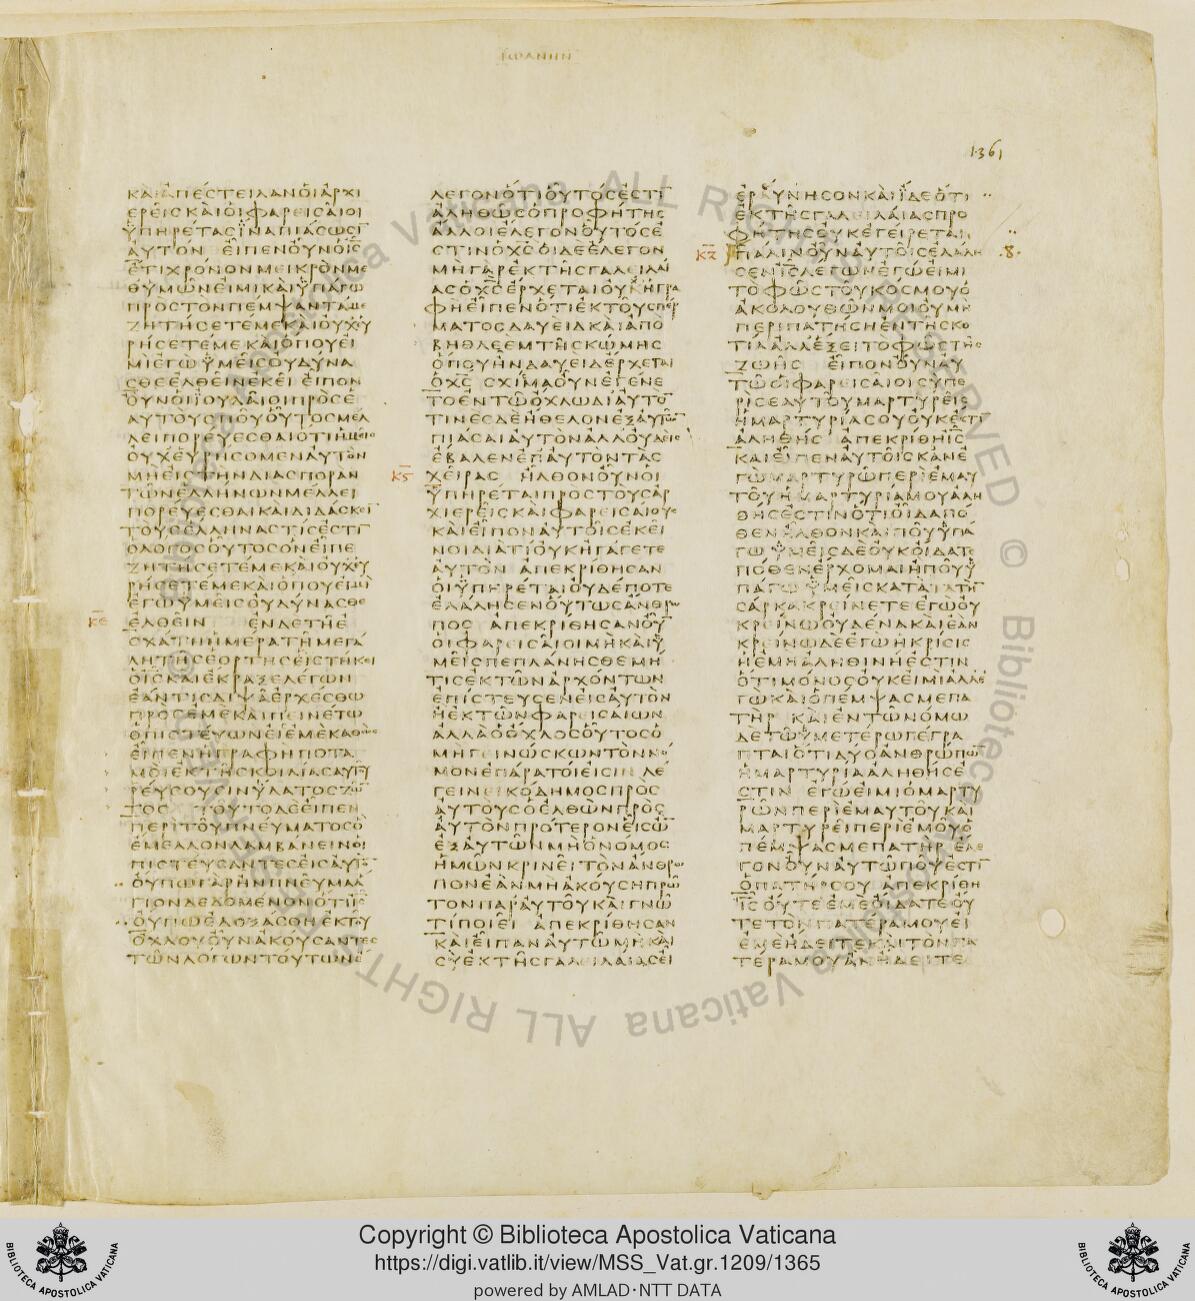 ΙΩΑΝΗΝ
1361
ΚΑΙ ΑΠΕCΤΕΙΛΑΝ ΟΙ ΑΡΧΙ
ΕΡΕΙC ΚΑΙ ΟΙ ΦΑΡΕΙCΑΙΟΙ
ΥΠΗΡΕΤΑC ΙΝΑ ΠΙΑCΩCΙ
ΑΥΤΟΝ ΕΙΠΕΝ ΟΥΝ Ο ΙC
ΕΤΙ ΧΡΟΝΟΝ ΜΕΙΚΡΟΝ ΜΕ
ΘΥΜΩΝ ΕΙΜΙ ΚΑΙ ΥΠΑΓΩ
ΠΡΟC ΤΟΝ ΠΕΜΨΑΝΤΑ ΜΕ
ΖΗΤΗCΕΤΕ ΜΕ ΚΑΙ ΟΥΧ ΕΥ
ΡΗCΕΤΕ ΜΕ ΚΑΙ ΟΠΟΥ ΕΙ
ΜΙ ΕΓΩ ΥΜΕΙC ΟΥ ΔΥΝΑ
CΘΕ ΕΛΘΕΙΝ ΕΚΕΙ ΕΙΠΟΝ
ΟΥΝ ΟΙ ΙΟΥΔΑΙΟΙ ΠΡΟC Ε
ΑΥΤΟΥC ΠΟΥ ΟΥΤΟC ΜΕΛ
ΛΕΙ ΠΟΡΕΥΕCΘΑΙ ΟΤΙ ΗΜΕΙC
ΟΥΧ ΕΥΡΗCΟΜΕΝ ΑΥΤΟΝ
ΜΗ ΕΙC ΤΗΝ ΔΙΑCΠΟΡΑΝ
ΤΩΝ ΕΛΛΗΝΩΝ ΜΕΛΛΕΙ
ΠΟΡΕΥΕCΘΑΙ ΚΑΙ ΔΙΔΑCΚΕΙ
ΤΟΥC ΕΛΛΗΝΑC ΤΙC ΕCΤΙ
Ο ΛΟΓΟC ΟΥΤΟC ΟΝ ΕΙΠΕ
ΖΗΤΗCΕΤΕ ΜΕ ΚΑΙ ΟΥΧ ΕΥ
ΡΗCΕΤΕ ΜΕ ΚΑΙ ΟΠΟΥ ΕΙΜΙ
ΕΓΩ ΥΜΕΙC ΟΥ ΔΥΝΑCΘΕ
ΚΕ ΕΛΘΕΙΝ ΕΝ ΔΕ ΤΗ Ε
CΧΑΤΗ ΗΜΕΡΑ ΤΗ ΜΕΓΑ
ΛΗ ΤΗC ΕΟΡΤΗC ΕΙCΤΗΚΕΙ
Ο ΙC ΚΑΙ ΕΚΡΑΞΕ ΛΕΓΩΝ
ΕΑΝ ΤΙC ΔΙΨΑ ΕΡΧΕCΘΩ
ΠΡΟC ΕΜΕ ΚΑΙ ΠΕΙΝΕΤΩ
Ο ΠΙCΤΕΥΩΝ ΕΙC ΕΜΕ ΚΑΘΩC
ΕΙΠΕΝ Η ΓΡΑΦΗ ΠΟΤΑ
ΜΟΙ ΕΚ ΤΗC ΚΟΙΛΙΑC ΑΥΤΟΥ
ΡΕΥCΟΥCΙΝ ΥΔΑΤΟC ΖΩ
ΤΟC ΤΟΥΤΟ ΔΕ ΕΙΠΕΝ
ΠΕΡΙ ΤΟΥ ΠΝΕΥΜΑΤΟC Ο
ΕΜΕΛΛΟΝ ΛΑΜΒΑΝΕΙΝ ΟΙ
ΠΙCΤΕΥCΑΝΤΕC ΕΙC ΑΥΤΟ
ΟΥΠΩ ΓΑΡ ΗΝ ΠΝΕΥΜΑ Α
ΓΙΟΝ ΔΕΔΟΜΕΝΟΝ ΟΤΙ ΙC
ΟΥΠΩ ΕΔΟΞΑCΘΗ ΕΚ ΤΟΥ
ΟΧΛΟΥ ΟΥΝ ΑΚΟΥCΑΝΤΕC
ΤΩΝ ΛΟΓΩΝ ΤΟΥΤΩΝ Ε
ΛΕΓΟΝ ΟΤΙ ΟΥΤΟC ΕCΤΙ
ΑΛΗΘΩC Ο ΠΡΟΦΗΤΗC
ΑΛΛΟΙ ΕΛΕΓΟΝ ΟΥΤΟC Ε
CΤΙΝ Ο ΧC ΟΙ ΔΕ ΕΛΕΓΟΝ
ΜΗ ΓΑΡ ΕΚ ΤΗC ΓΑΛΕΙΛΑΙ
ΑC Ο ΧC ΕΡΧΕΤΑΙ ΟΥΧ Η ΓΡΑ
ΦΗ ΕΙΠΕΝ ΟΤΙ ΕΚ ΤΟΥ CΠΕΡ
ΜΑΤΟC ΔΑΥΕΙΔ ΚΑΙ ΑΠΟ
ΒΗΘΛΕΕΜ ΤΗC ΚΩΜΗC
ΟΠΟΥ ΗΝ ΔΑΥΕΙΔ ΕΡΧΕΤΑΙ
Ο ΧC CΧΙCΜΑ ΟΥΝ ΕΓΕΝΕ
ΤΟ ΕΝ ΤΩ ΟΧΛΩ ΔΙ ΑΥΤΟ
ΤΙΝΕC ΔΕ ΗΘΕΛΟΝ ΕΞ ΑΥΤΩ
ΠΙΑCΑΙ ΑΥΤΟΝ ΑΛΛ ΟΥΔΕΙC
ΕΒΑΛΕΝ ΕΠ ΑΥΤΟΝ ΤΑC
ΚϚ ΧΕΙΡΑC ΗΛΘΟΝ ΟΥΝ ΟΙ
ΥΠΗΡΕΤΑΙ ΠΡΟC ΤΟΥC ΑΡ
ΧΙΕΡΕΙC ΚΑΙ ΦΑΡΕΙCΑΙΟΥC
ΚΑΙ ΕΙΠΟΝ ΑΥΤΟΙC ΕΚΕΙ
ΝΟΙ ΔΙΑ ΤΙ ΟΥΚ ΗΓΑΓΕΤΕ
ΑΥΤΟΝ ΑΠΕΚΡΙΘΗCΑΝ
ΟΙ ΥΠΗΡΕΤΑΙ ΟΥΔΕΠΟΤΕ
ΕΛΑΛΗCΕΝ ΟΥΤΩC ΑΝΘΡΩ
ΠΟC ΑΠΕΚΡΙΘΗCΑΝ ΟΥ
ΟΙ ΦΑΡΕΙCΑΙΟΙ ΜΗ ΚΑΙ Υ
ΜΕΙC ΠΕΠΛΑΝΗCΘΕ ΜΗ
ΤΙC ΕΚ ΤΩΝ ΑΡΧΟΝΤΩΝ
ΕΠΙCΤΕΥCΕΝ ΕΙC ΑΥΤΟΝ
Η ΕΚ ΤΩΝ ΦΑΡΕΙCΑΙΩΝ
ΑΛΛΑ Ο ΟΧΛΟC ΟΥΤΟC Ο
ΜΗ ΓΕΙΝΩCΚΩΝ ΤΟΝ ΝΟ
ΜΟΝ ΕΠΑΡΑΤΟΙ ΕΙCΙΝ ΛΕ
ΓΕΙ ΝΕΙΚΟΔΗΜΟC ΠΡΟC
ΑΥΤΟΥC Ο ΕΛΘΩΝ ΠΡΟC
ΑΥΤΟΝ ΠΡΟΤΕΡΟΝ ΕΙC Ω
ΕΞ ΑΥΤΩΝ ΜΗ Ο ΝΟΜΟC
ΗΜΩΝ ΚΡΙΝΕΙ ΤΟΝ ΑΝΘΡΩ
ΠΟΝ ΕΑΝ ΜΗ ΑΚΟΥCΗ ΠΡΩ
ΤΟΝ ΠΑΡ ΑΥΤΟΥ ΚΑΙ ΓΝΩ
ΤΙ ΠΟΙΕΙ ΑΠΕΚΡΙΘΗCΑΝ
ΚΑΙ ΕΙΠΑΝ ΑΥΤΩ ΜΗ ΚΑΙ
CΥ ΕΚ ΤΗC ΓΑΛΕΙΛΑΙΑC ΕΙ
ΕΡΑΥΝΗCΟΝ ΚΑΙ ΙΔΕ ΟΤΙ
ΕΚ ΤΗC ΓΑΛΕΙΛΑΙΑC ΠΡΟ
ΦΗΤΗC ΟΥΚ ΕΓΕΙΡΕΤΑΙ
ΚΖ ΠΑΛΙΝ ΟΥΝ ΑΥΤΟΙC ΕΛΑΛΗ 8
CΕΝ ΙC ΛΕΓΩΝ ΕΓΩ ΕΙΜΙ
ΤΟ ΦΩC ΤΟΥ ΚΟCΜΟΥ Ο
ΑΚΟΛΟΥΘΩΝ ΜΟΙ ΟΥ ΜΗ
ΠΕΡΙΠΑΤΗCΗ ΕΝ ΤΗ CΚΟ
ΤΙΑ ΑΛΛ ΕΞΕΙ ΤΟ ΦΩC ΤΗC
ΖΩΗC ΕΙΠΟΝ ΟΥΝ ΑΥ
ΤΩ ΟΙ ΦΑΡΕΙCΑΙΟΙ CΥ ΠΕ
ΡΙ CΕΑΥΤΟΥ ΜΑΡΤΥΡΕΙC
Η ΜΑΡΤΥΡΙΑ CΟΥ ΟΥΚ ΕCΤΙ
ΑΛΗΘΗC ΑΠΕΚΡΙΘΗ ΙC
ΚΑΙ ΕΙΠΕΝ ΑΥΤΟΙC ΚΑΝ Ε
ΓΩ ΜΑΡΤΥΡΩ ΠΕΡΙ ΕΜΑΥ
ΤΟΥ Η ΜΑΡΤΥΡΙΑ ΜΟΥ ΑΛΗ
ΘΗC ΕCΤΙΝ ΟΤΙ ΟΙΔΑ ΠΟ
ΘΕΝ ΗΛΘΟΝ ΚΑΙ ΠΟΥ ΥΠΑ
ΓΩ ΥΜΕΙC ΔΕ ΟΥΚ ΟΙΔΑΤΕ
ΠΟΘΕΝ ΕΡΧΟΜΑΙ Η ΠΟΥ Υ
ΠΑΓΩ ΥΜΕΙC ΚΑΤΑ ΤΗ
CΑΡΚΑ ΚΡΕΙΝΕΤΕ ΕΓΩ ΟΥ
ΚΡΕΙΝΩ ΟΥΔΕΝΑ ΚΑΙ ΕΑΝ
ΚΡΕΙΝΩ ΔΕ ΕΓΩ Η ΚΡΙCΙC
Η ΕΜΗ ΑΛΗΘΙΝΗ ΕCΤΙΝ
ΟΤΙ ΜΟΝΟC ΟΥΚ ΕΙΜΙ ΑΛΛ Ε
ΓΩ ΚΑΙ Ο ΠΕΜΨΑC ΜΕ ΠΑ
ΤΗΡ ΚΑΙ ΕΝ ΤΩ ΝΟΜΩ
ΔΕ ΤΩ ΥΜΕΤΕΡΩ ΓΕΓΡΑ
ΠΤΑΙ ΟΤΙ ΔΥΟ ΑΝΘΡΩΠΩ
Η ΜΑΡΤΥΡΙΑ ΑΛΗΘΗC Ε
CΤΙΝ ΕΓΩ ΕΙΜΙ Ο ΜΑΡΤΥ
ΡΩΝ ΠΕΡΙ ΕΜΑΥΤΟΥ ΚΑΙ
ΜΑΡΤΥΡΕΙ ΠΕΡΙ ΕΜΟΥ Ο
ΠΕΜΨΑC ΜΕ ΠΑΤΗΡ ΕΛΕ
ΓΟΝ ΟΥΝ ΑΥΤΩ ΠΟΥ ΕCΤΙ
Ο ΠΑΤΗΡ CΟΥ ΑΠΕΚΡΙΘΗ
ΙC ΟΥΤΕ ΕΜΕ ΟΙΔΑΤΕ ΟΥ
ΤΕ ΤΟΝ ΠΑΤΕΡΑ ΜΟΥ ΕΙ
ΕΜΕ ΗΔΕΙΤΕ ΚΑΙ ΤΟΝ ΠΑ
ΤΕΡΑ ΜΟΥ ΑΝ ΗΔΕΙΤΕ
Copyright © Biblioteca Apostolica Vaticana
https://digi.vatlib.it/view/MSS_Vat.gr.1209/1365
powered by AMLAD·NTT DATA
BIBLIOTECA APOSTOLICA VATICANA
BIBLIOTECA APOSTOLICA VATICANA